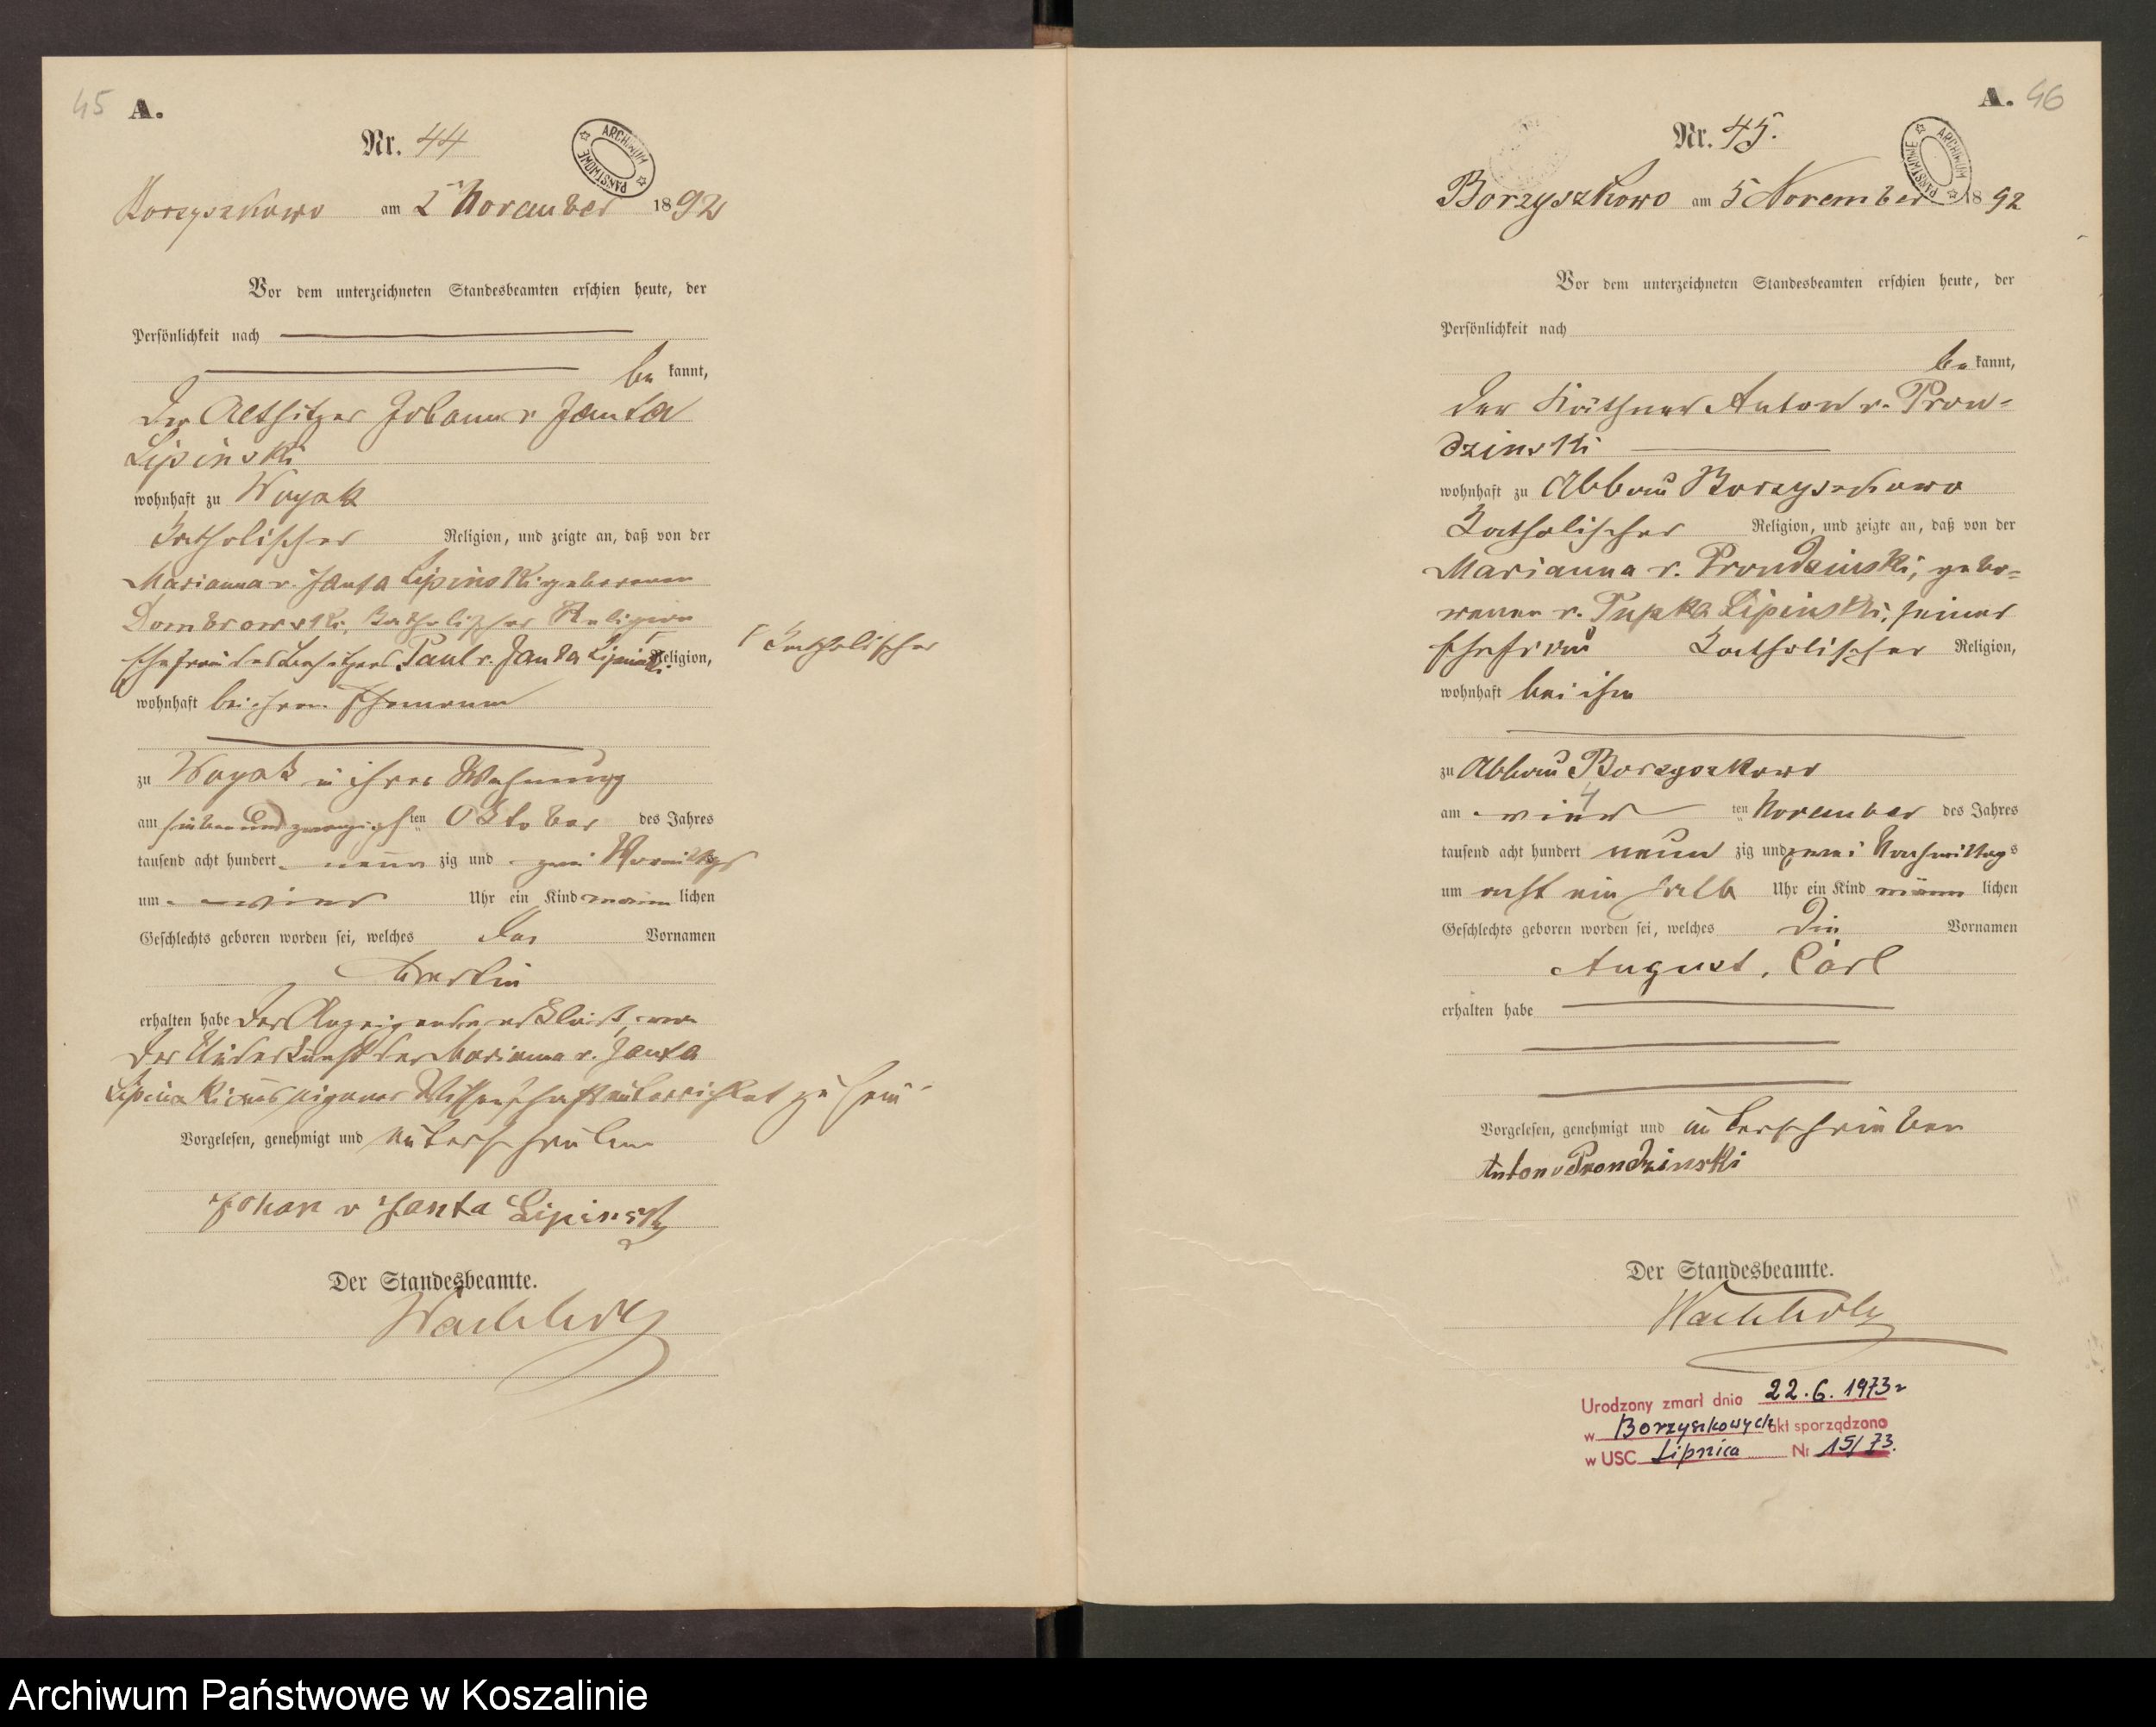 45 A.
Nr. 44
ARCHIWUM PAŃSTWOWE
Borzyszkowo am 2 November 1892
Vor dem unterzeichneten Standesbeamten erschien heute, der
Persönlichkeit nach
be kannt,
der Altsitzer Johann v. Janta
Lipinski
wohnhaft zu Woyak
Katholischer Religion, und zeigte an, daß von der
Marianna v. Janta Lipinski geborenen
Dombrowski, Katholischer Religion
Ehefrau des Besitzers Paul v. Janta Lipinski Religion,
Γ Katholischer
wohnhaft bei ihrem Ehemann
zu Woyak in ihrer Wohnung
am sieben und zwanzigsten ten Oktober des Jahres
tausend acht hundert neun zig und zwei Vormittags
um vier Uhr ein Kind männ lichen
Geschlechts geboren worden sei, welches den Vornamen
erhalten habe Der Anzeigende erklärt, von
der Niederkunft der Marianna v. Janta
Lipinski aus eigener Wissenschaft unterrichtet zu sein
Vorgelesen, genehmigt und unterschrieben
Johan v Janta Lipinski
Der Standesbeamte.
Wachholz
A. 46
Nr. 45.
ARCHIWUM PAŃSTWOWE
Borzyszkowo am 5 November 1892
Vor dem unterzeichneten Standesbeamten erschien heute, der
Persönlichkeit nach
be kannt,
der Käthner Anton v. Pron-
dzinski
wohnhaft zu Abbau Borzyszkowo
Katholischer Religion, und zeigte an, daß von der
Marianna v. Prondzinski, gebo-
renen v. Pupka Lipinski, seiner
Ehefrau Katholischer Religion,
wohnhaft bei ihm
zu Abbau Borzyszkowo
4
am vier ten November des Jahres
tausend acht hundert neun zig und zwei Nachmittags
um acht ein halb Uhr ein Kind männ lichen
Geschlechts geboren worden sei, welches die Vornamen
August, Carl
erhalten habe
Vorgelesen, genehmigt und unterschrieben
Anton v Prondzinski
Der Standesbeamte.
Wachholz
Urodzony zmarł dnia 22.6.1973 r
w Borzyszkowych akt sporządzono
w USC Lipnica Nr 15/73.
Archiwum Państwowe w Koszalinie